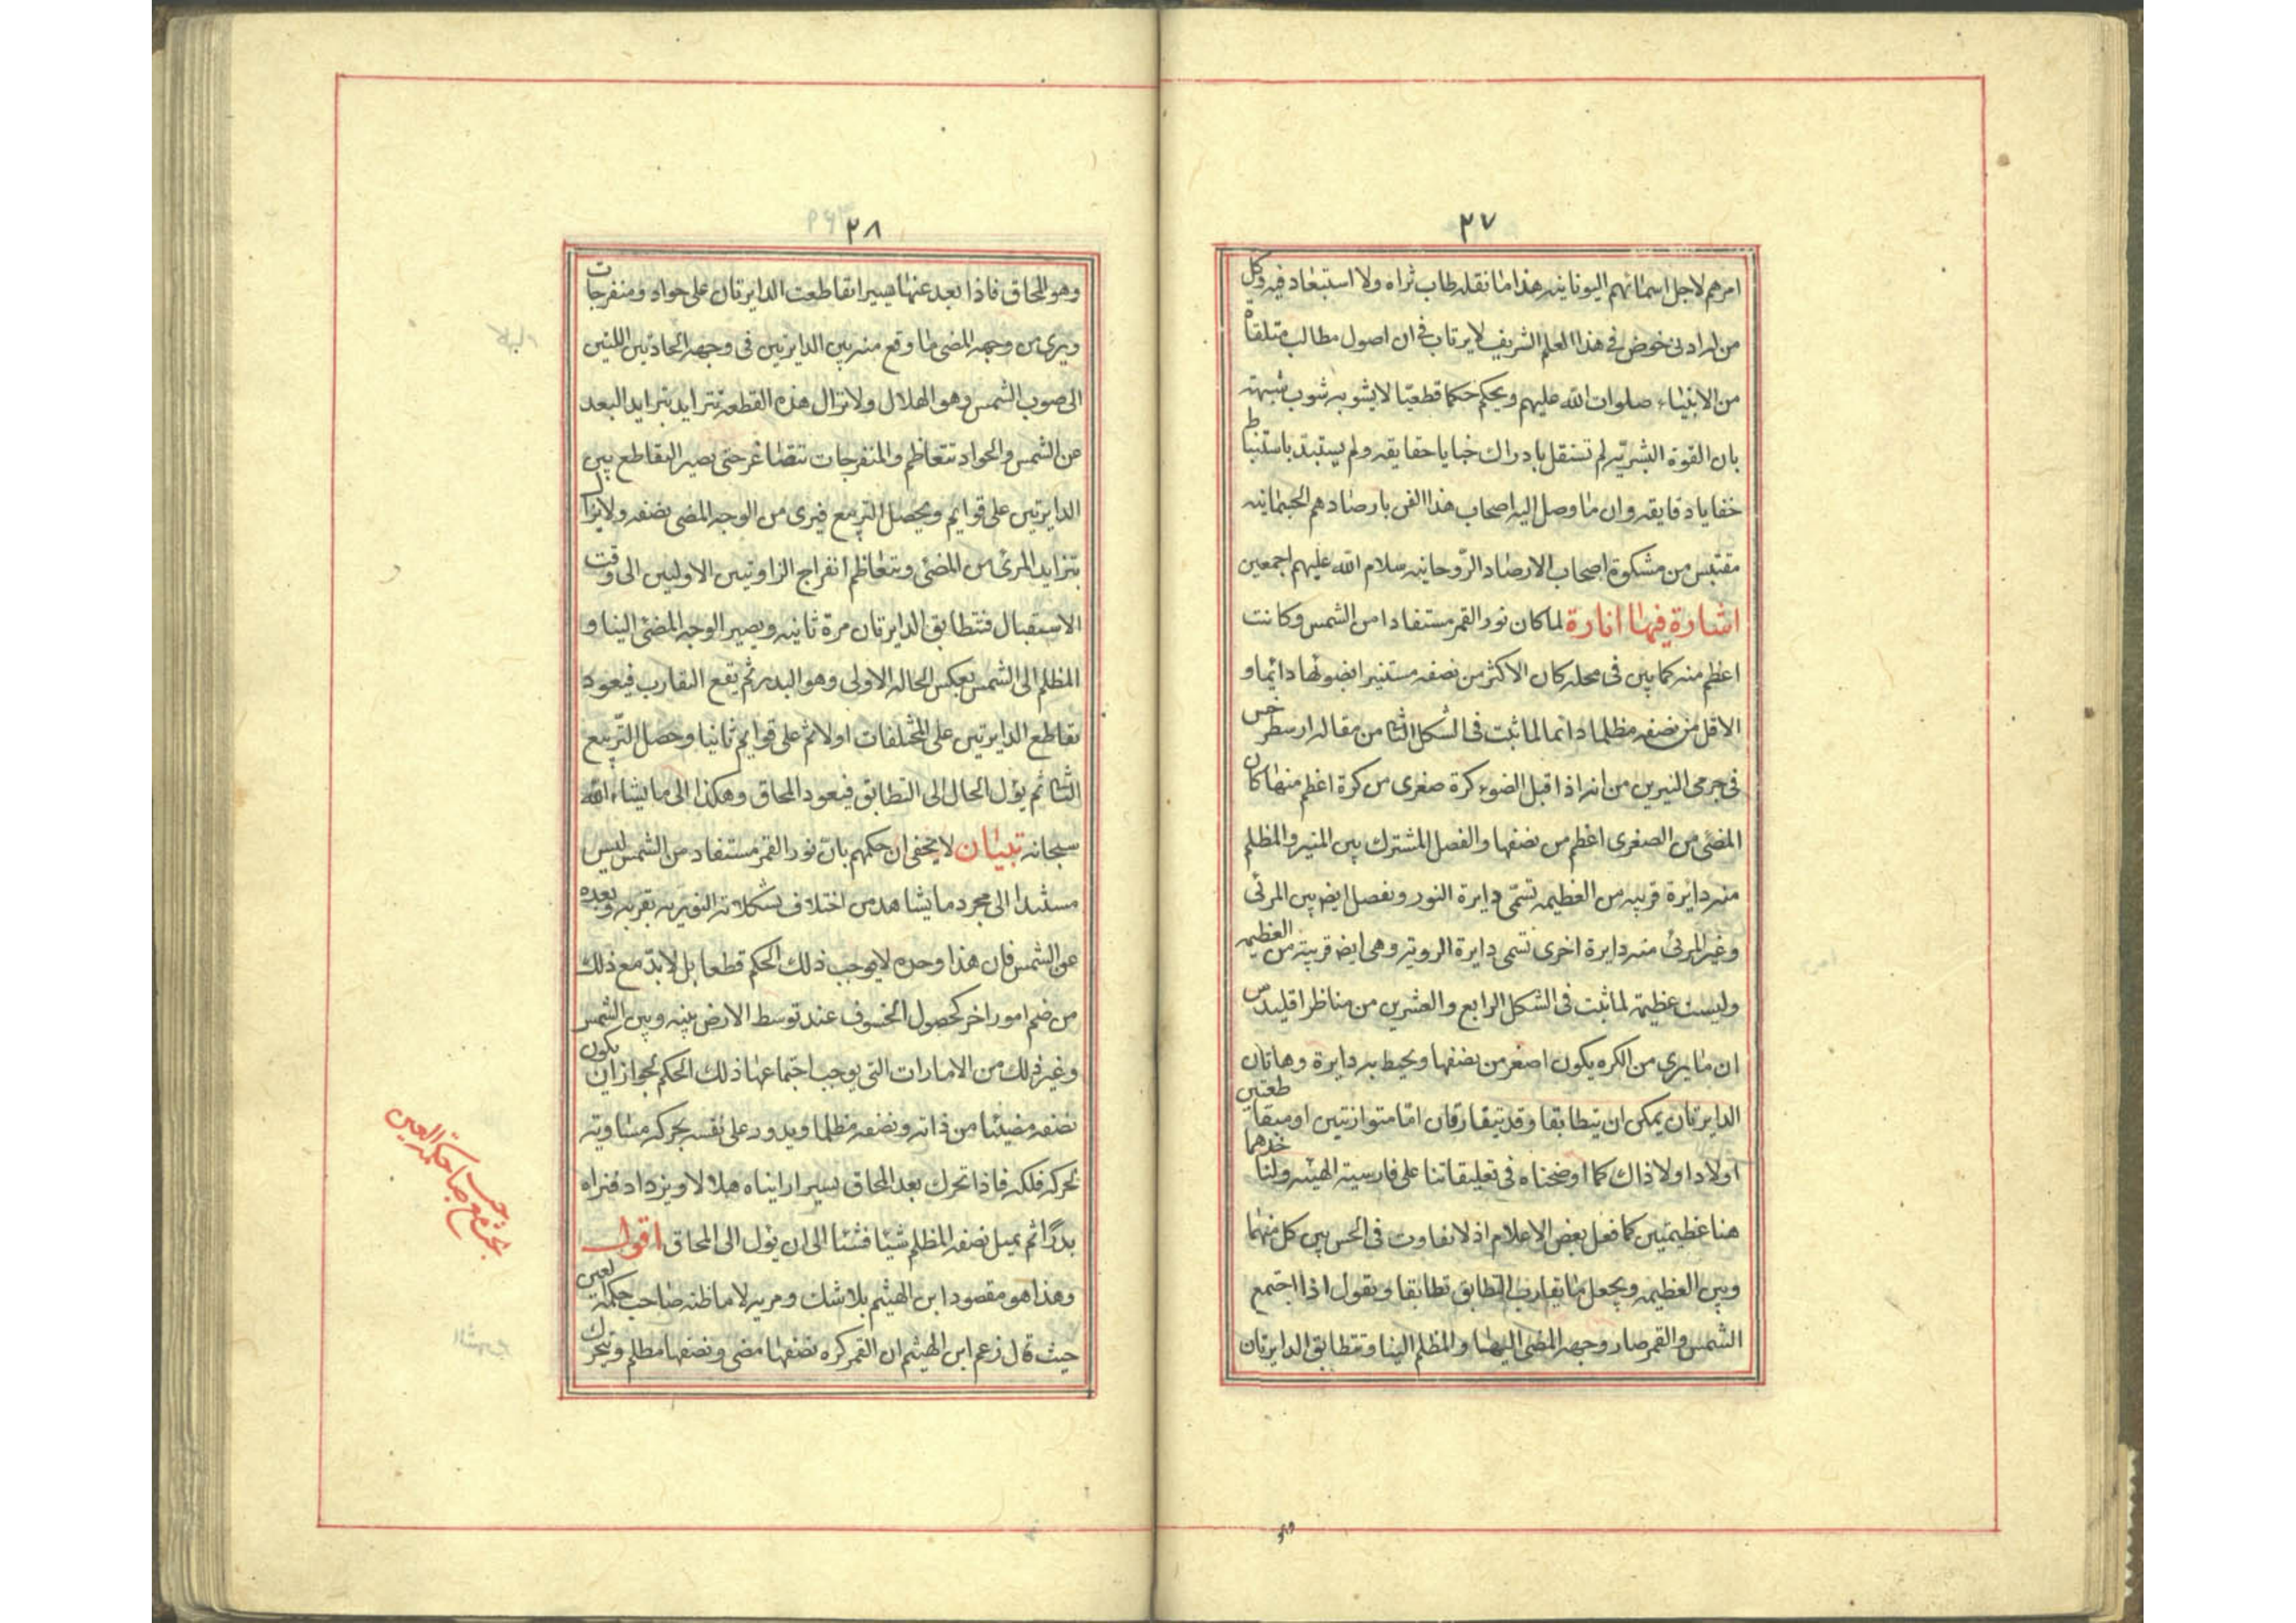 ٢٧
امرهم لاجل اسمائهم اليونانيه هذا ما نقله طاب ثراه ولا استبعاد فيه وكل
من له ادنى خوض فى هذا العلم الشريف لا يرتاب فى ان اصول مطالبه متلقاة
من الانبياء صلوات الله عليهم ويحكم حكما قطعيّا لا يشوبه شوب شبهة
بان القوة البشريّه لم تستقل بادراك خبايا حقايقه ولم يستبد باستنباط
خفايا دقايقه وان ما وصل اليه اصحاب هذا الفن بارصادهم الجسمانيه
مقتبس من مشكوة اصحاب الارصاد الرّوحانيه سلام الله عليهم اجمعين
اشارة فيها انارة لما كان نور القمر مستفادا من الشمس وكانت
اعظم منه كما بين فى محله كان الاكثر من نصفه مستنيرا بضوئها دائما و
الاقل من نصفه مظلما دائما لما ثبت فى الشكل الثانى من مقاله ارسطرخس
فى جرمى النيرين من انه اذا قبل الضوء كرة صغرى من كرة اعظم منها كان
المضئ من الصغرى اعظم من نصفها والفصل المشترك بين المنير والمظلم
منه دايرة قريبه من العظيمه تسمّى دايرة النور ويفصل ايضا بين المرئى
وغير المرئى منه دايرة اخرى تسمى دايرة الروية وهى ايضا قريبة من العظيمه
وليست عظيمة لما ثبت فى الشكل الرابع والعشرين من مناظر اقليدس
ان ما يرى من الكره يكون اصغر من نصفها ويحيط به دايرة وهاتان
الدايرتان يمكن ان يتطابقا وقد يتفارقان امّا متوازيتين او متقاطعتين
اولا ذا ولا ذاك كما اوضحناه فى تعليقاتنا على فارسية الهيئه ولناخذهما
هنا عظيمتين كما فعل بعض الاعلام اذ لا تفاوت فى الحس بين كل منهما
وبين العظيمه ويجعل ما يقارب التطابق تطابقا ويقول اذا اجتمع
الشمس والقمر صار وجهه المضى اليها والمظلم الينا وتتطابق الدايرتان
٢٨
وهو المحاق فاذا بعد عنها يسيرا تقاطعت الدايرتان على حواد ومنفرجات
ويرى من وجهه المضى ما وقع منه بين الدايرتين فى وجهه الحادتين اللتين
الى صوب الشمس وهو الهلال ولا تزال هذه القطعه تتزايد بتزايد البعد
عن الشمس والحواد تتعاظم والمنفرجات تتصاغر حتى يصير التقاطع بين
الدايرتين على قوايم ويحصل التربيع فيرى من الوجه المضى نصفه ولا يزال
يتزايد المرئ من المضئ ويتعاظم انفراج الزاويتين الاوليين الى وقت
الاستقبال فتتطابق الدايرتان مرة ثانيه ويصير الوجه المضئ الينا و
المظلم الى الشمس بعكس الحاله الاولى وهو البدر ثم يقع التقارب فيعود
تقاطع الدايرتين على المختلفات اولا ثم على قوايم ثانيا وحصل التّربيع
الثانى ثم يؤل الحال الى التطابق فيعود المحاق وهكذا الى ما يشاء الله
سبحانه تبيان لا يخفى ان حكمهم بان نور القمر مستفاد من الشمس ليس
مستندا الى مجرد ما يشاهد من اختلاف تشكلاته النوريه بقربه وبعده
عن الشمس فان هذا وحده لا يوجب ذلك الحكم قطعا بل لابدّ مع ذلك
من ضم امور اخر كحصول الخسوف عند توسط الارض بينه وبين الشمس
وغير ذلك من الامارات التى يوجب اجتماعها ذلك الحكم لجواز ان يكون
نصفه مضيئا من ذاته ونصفه مظلما ويدور على نفسه بحركة مساوية
لحركة فلكه فاذا تحرك بعد المحاق يسيرا رايناه هلالا ويزداد فنراه
بدرًا ثم يميل نصفه المظلم شيئا فشيئا الى ان يؤل الى المحاق اقول
وهذا هو مقصود ابن الهيثم بلا شك ومريه لا ما ظنه صاحب حكمة العين
حيث قال زعم ابن الهيثم ان القمر كره نصفها مضى ونصفها مظلم وتتحرك
صاحب حكمة العين